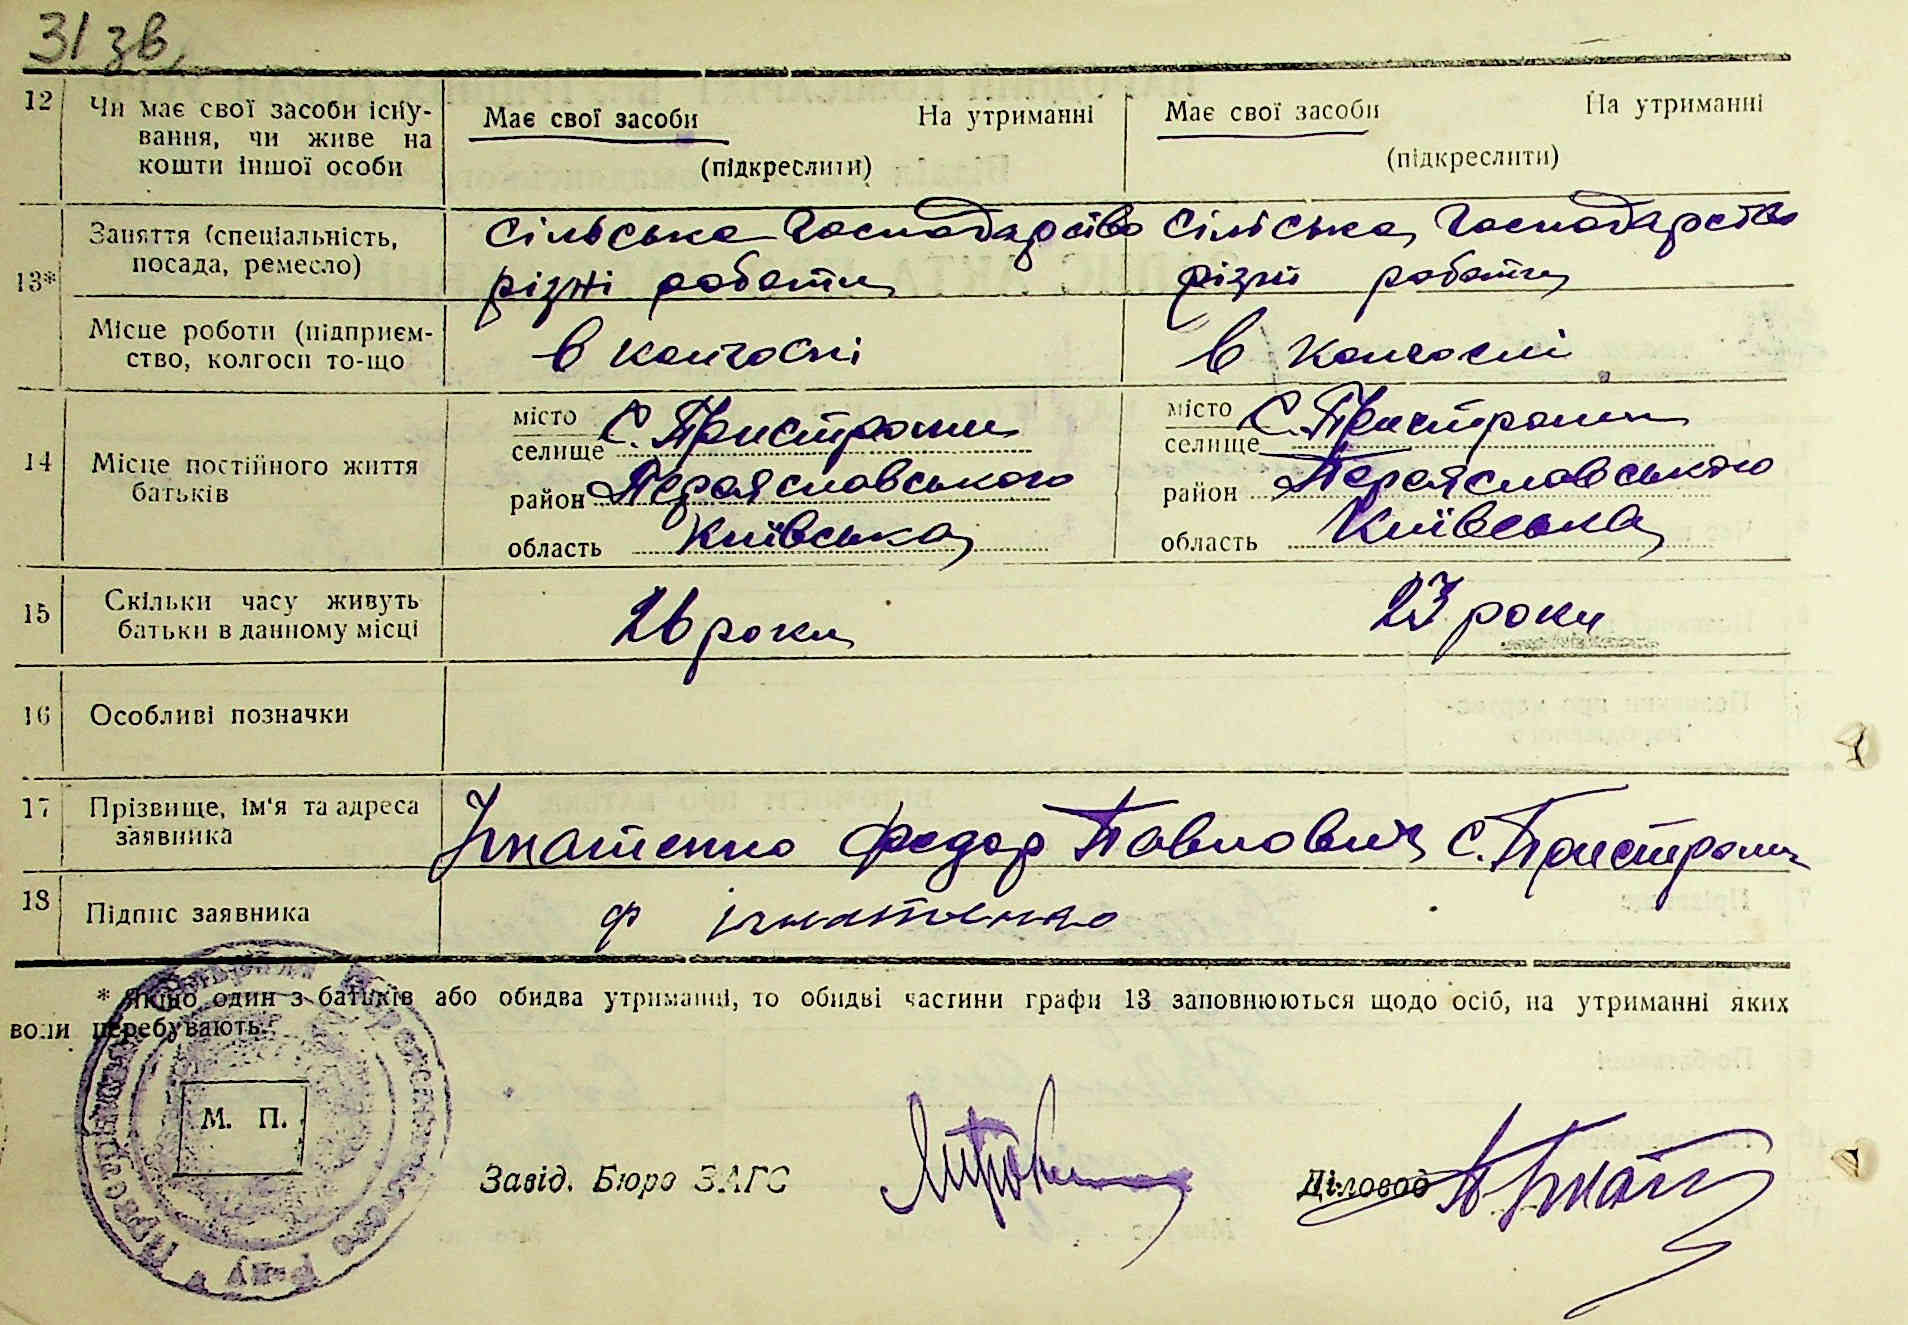 31 зв,
12 Чи має свої засоби існу- Має свої засоби На утриманні Має свої засоби На утриманні
вання, чи живе на
кошти іншої особи (підкреслити) (підкреслити)
13* Заняття (спеціальність, сільське господарство сільське господарство
посада, ремесло) різні роботи різні роботи
Місце роботи (підприєм- в колгоспі в колгоспі
ство, колгосп то-що
14 Місце постійного життя батьків
місто С. Пристроми місто С. Пристроми
селище селище
район Переяславського район Переяславського
область Київська область Київська
15 Скільки часу живуть 26 роки 23 роки
батьки в данному місці
16 Особливі позначки
17 Прізвище, ім'я та адреса Ігнатенко Федор Павлович С. Пристроми
заявника
18 Підпис заявника Ф Ігнатенко
* Якщо один з батьків або обидва утриманні, то обидві частини графи 13 заповнюються щодо осіб, на утриманні яких
вони перебувають.
М. П.
Завід. Бюро ЗАГС Діловод